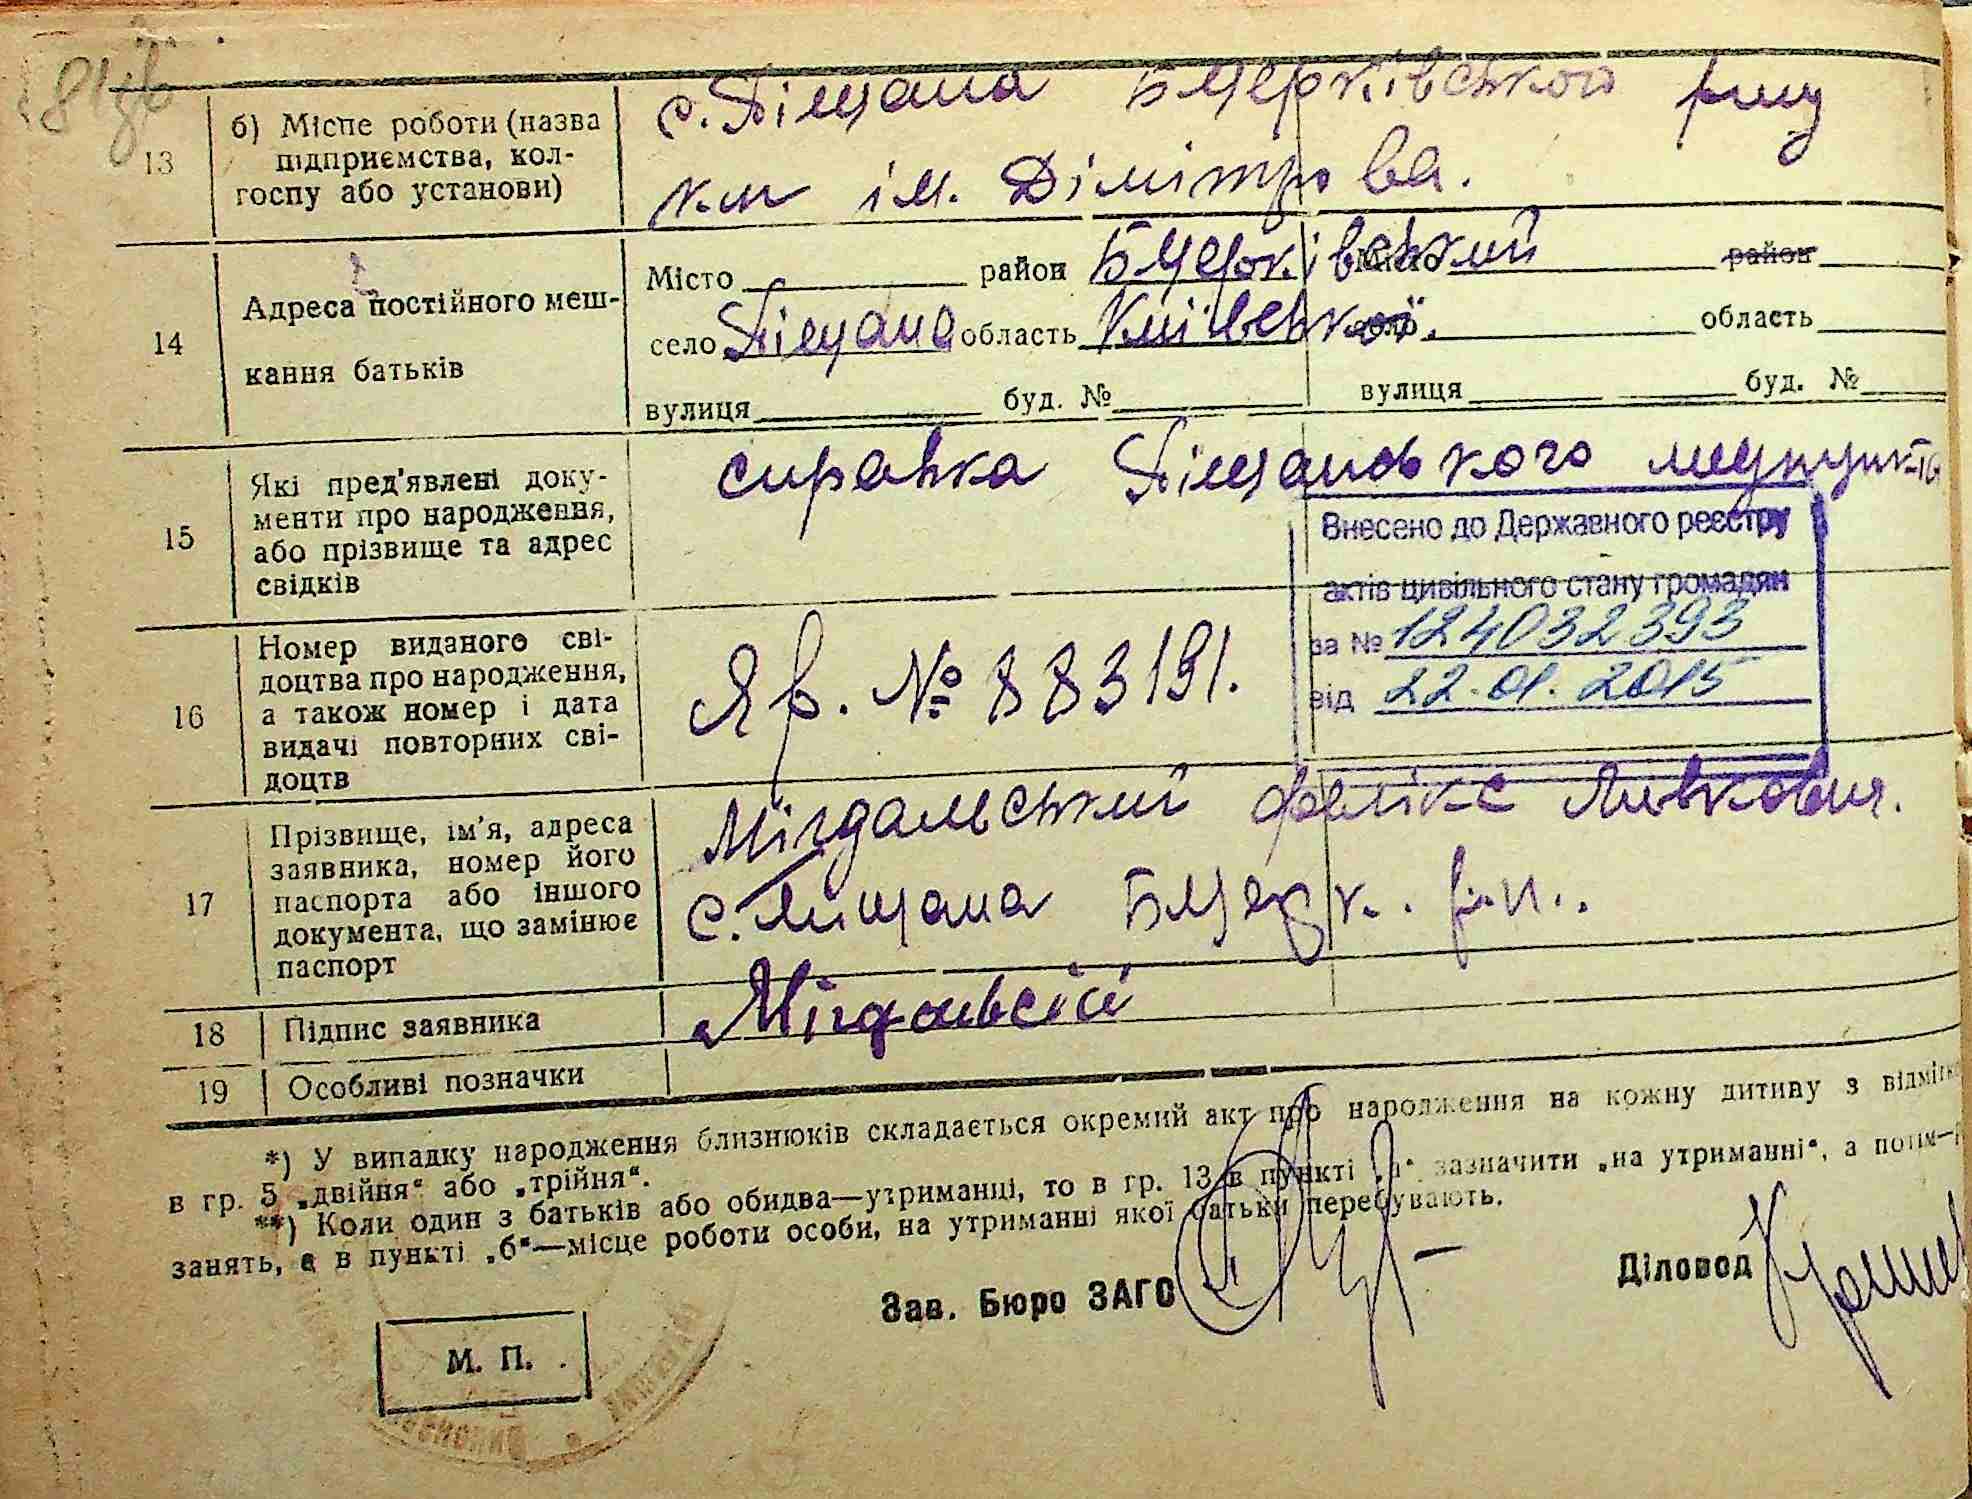 81зв
13
б) Місце роботи (назва
підприємства, кол-
госпу або установи)
с. Піщана БЦерківського р-ну
к-п ім. Дімітрова.
14
Адреса постійного меш-
кання батьків
Місто район БЦерківський Місто район
село Піщана область Київської. село область
вулиця буд. № вулиця буд. №
15
Які пред'явлені доку-
менти про народження,
або прізвище та адрес
свідків
справка Піщановського медпункта
Внесено до Державного реєстру
актів цивільного стану громадян
за № 124032393
від 22.01.2015
16
Номер виданого сві-
доцтва про народження,
а також номер і дата
видачі повторних сві-
доцтв
Яр. № 883191.
17
Прізвище, ім'я, адреса
заявника, номер його
паспорта або іншого
документа, що замінює
паспорт
Мігдальський Фелікс
с. Пищана БЦерк. р-н.
18
Підпис заявника
Мігдальскій
19
Особливі позначки
*) У випадку народження близнюків складається окремий акт про народження на кожну дитину з відмітко
в гр. 5 „двійня“ або „трійня“.
**) Коли один з батьків або обидва—утриманці, то в гр. 13 в пункті „а“ зазначити „на утриманні“, а потім—
занять, а в пункті „б“—місце роботи особи, на утриманні якої батьки перебувають.
Зав. Бюро ЗАГС
Діловод
М. П.